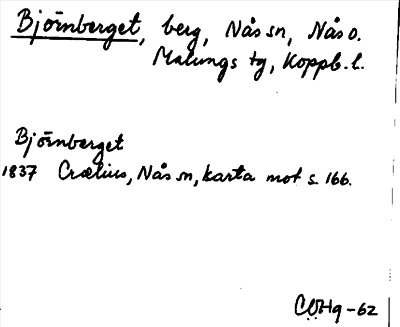 Björnberget, berg, Nås sn, Nås o.
Malungs tg, Koppb. l.
Björnberget
1837 Crælius, Nås sn, karta mot s. 166.
CÖHg-62